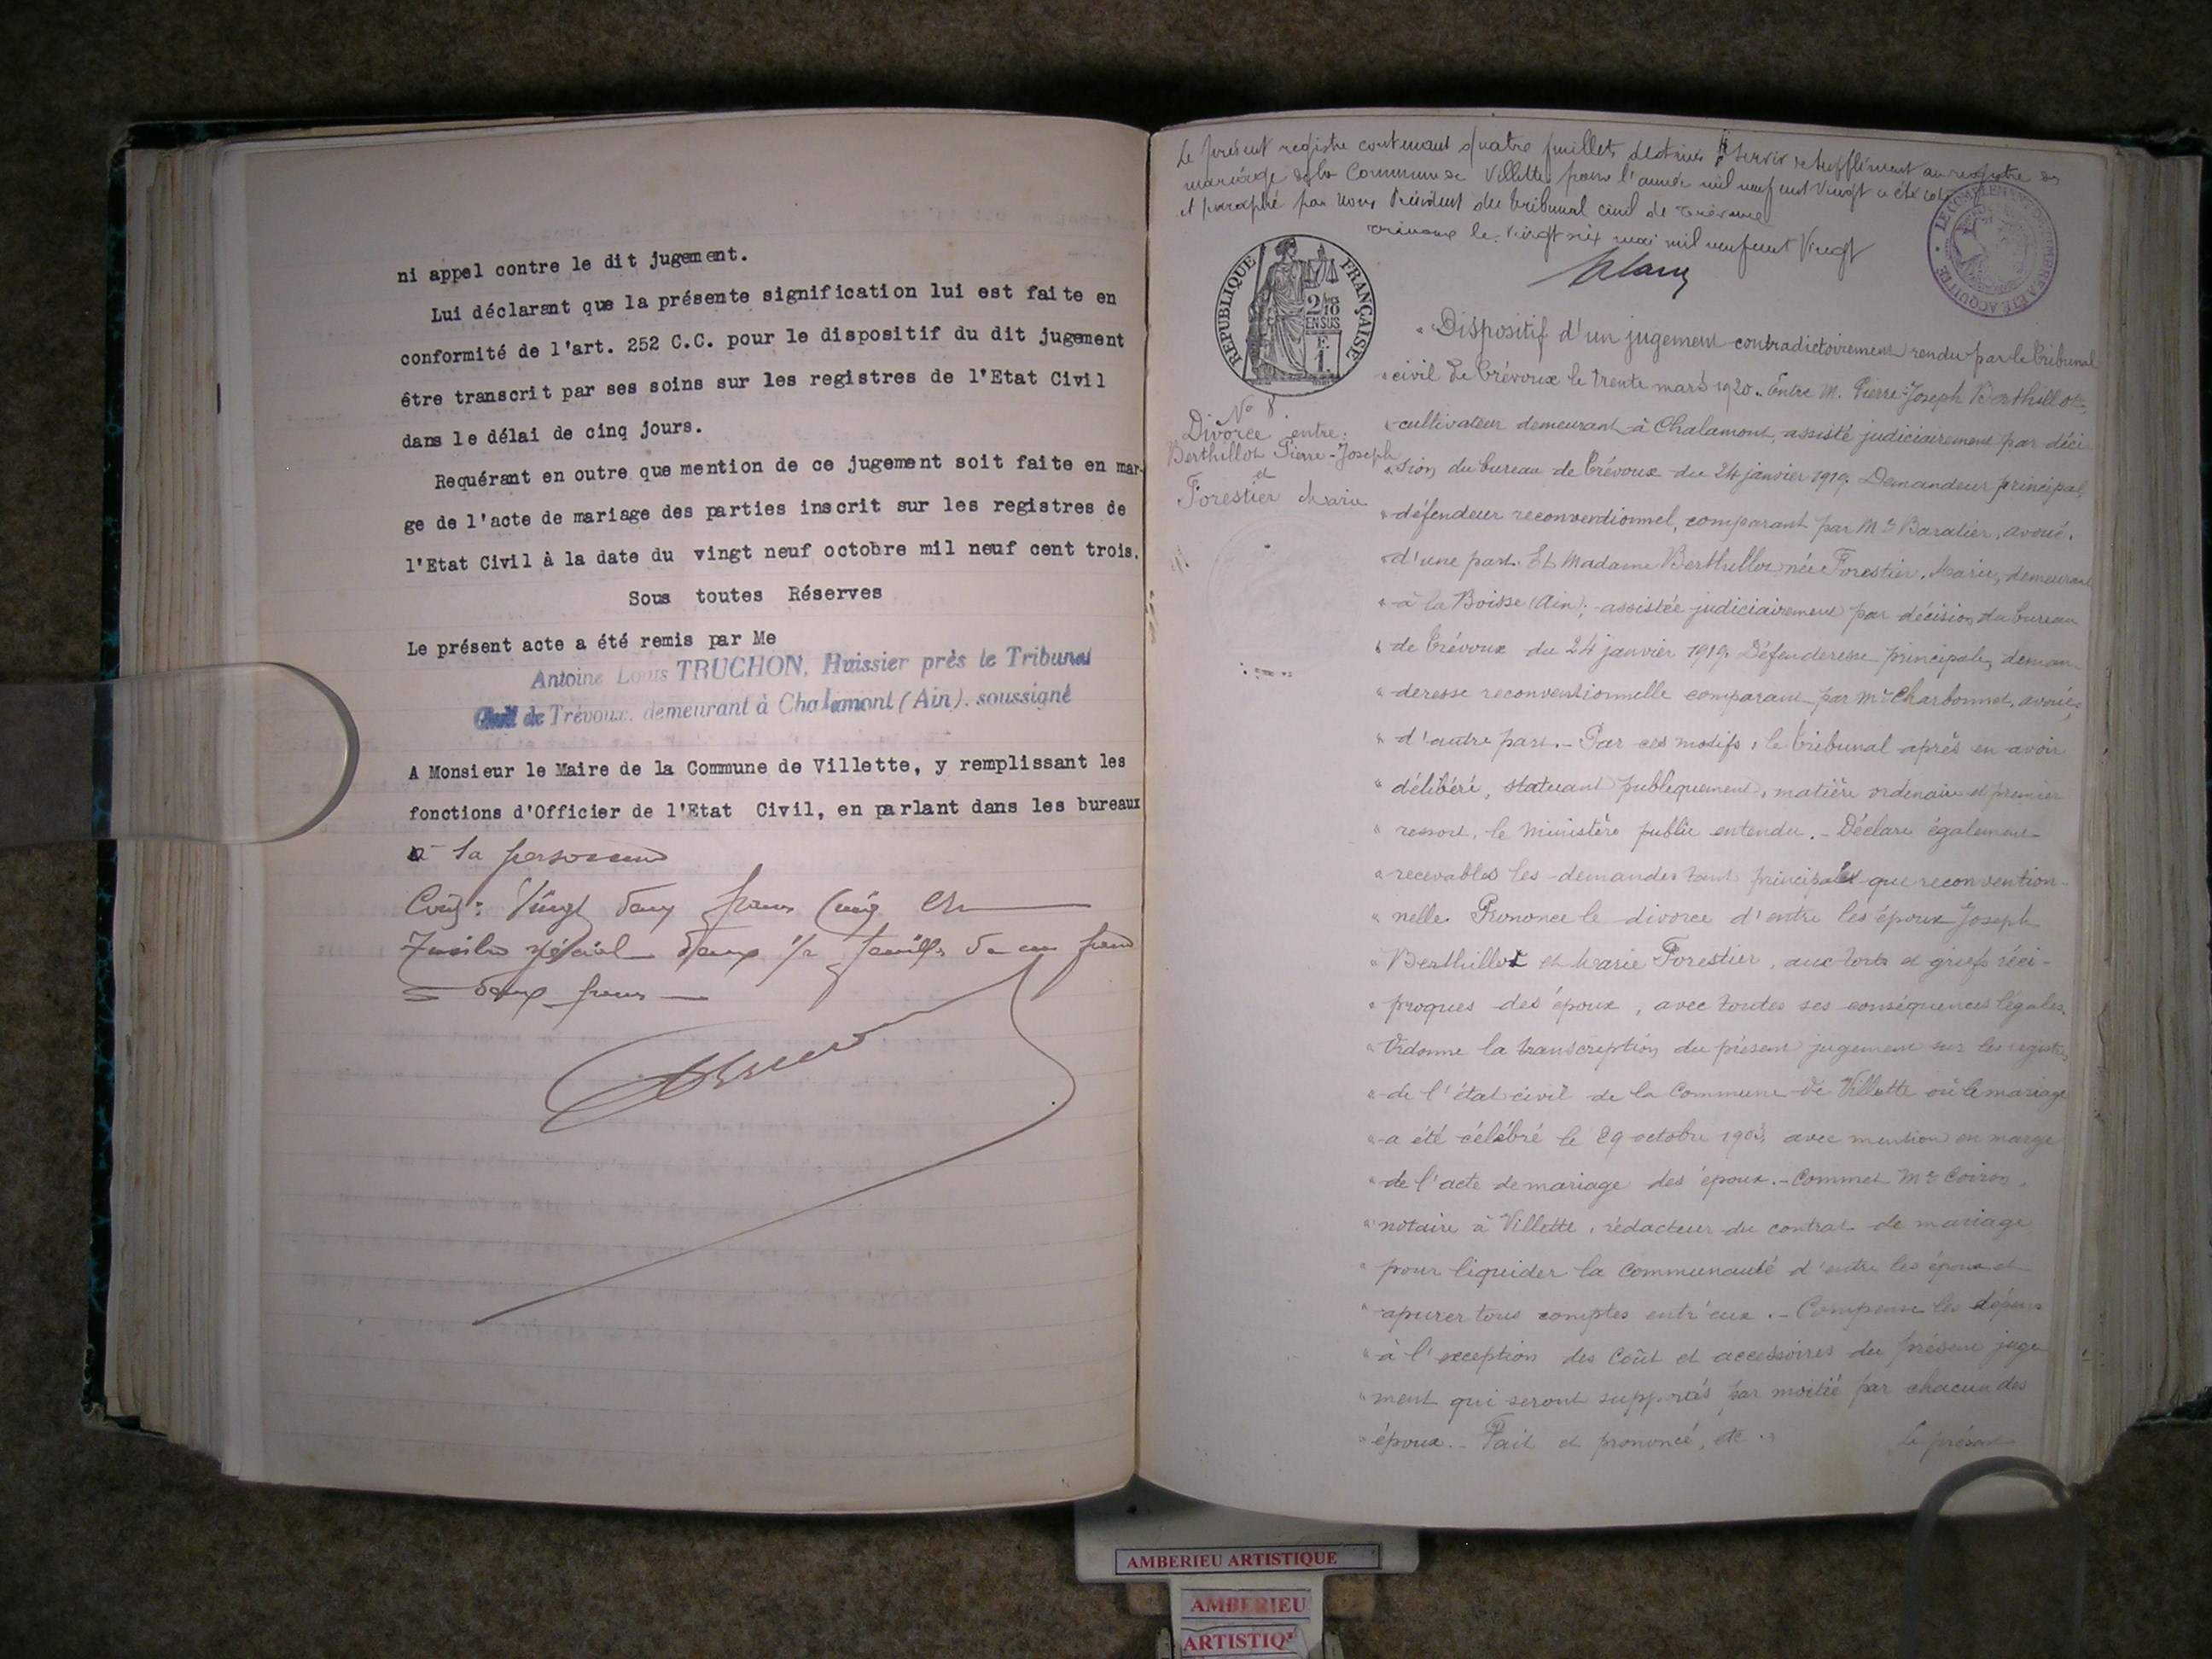 ni appel contre le dit jugement.
Lui déclarant que la présente signification lui est faite en
conformité de l'art. 252 C.C. pour le dispositif du dit jugement
être transcrit par ses soins sur les registres de l'Etat Civil
dans le délai de cinq jours.
Requérant en outre que mention de ce jugement soit faite en mar-
ge de l'acte de mariage des parties inscrit sur les registres de
l'Etat Civil à la date du vingt neuf octobre mil neuf cent trois.
Sous toutes Réserves
Le présent acte a été remis par Me
Antoine Louis TRUCHON, Huissier près le Tribunal
Civil de Trévoux, demeurant à Chalamont (Ain). soussigné
A Monsieur le Maire de la Commune de Villette, y remplissant les
fonctions d'Officier de l'Etat Civil, en parlant dans les bureaux
à sa personne
Coût: Vingt deux francs cinq
Timbre spécial deux 1/2 feuilles de un franc
= deux francs
Le présent registre contenant quatre feuillets destinés à servir de supplément au registre des
mariage de la Commune de Villette pour l'année mil neuf cent vingt a été coté
et paraphé par nous Président du tribunal civil de Trévoux
Trévoux le vingt six mai mil neuf cent Vingt
REPUBLIQUE FRANÇAISE
2/10
EN SUS
F.
1.
No 8.
Divorce entre:
Berthillot Pierre-Joseph
et
Forestier Marie
" Dispositif d'un jugement contradictoirement rendu par le tribunal
" civil de Trévoux le trente mars 1920. Entre M. Pierre-Joseph Berthillot,
" cultivateur demeurant à Chalamont, assisté judiciairement par déci-
" sion du bureau de Trévoux du 24 janvier 1919. Demandeur principal,
" défendeur reconventionnel, comparant par Me Baratier, avoué.
" d'une part. Et Madame Berthillot née Forestier, Marie, demeurant
" à la Boisse (Ain); assistée judiciairement par décision du bureau
" de Trévoux du 24 janvier 1919. Défenderesse principale, deman-
" deresse reconventionnelle comparant par Me Charbonnet, avoué,
" d'autre part. - Par ces motifs, le tribunal après en avoir
" délibéré, statuant publiquement, matière ordinaire et premier
" ressort, le Ministère public entendu. - Déclare également
" recevables les demandes tant principales que reconvention-
" nelle. Prononce le divorce d'entre les époux Joseph
" Berthillot et Marie Forestier, aux torts et griefs réci-
" proques des époux, avec toutes ses conséquences légales.
" Ordonne la transcription du présent jugement sur les registres
" de l'état civil de la Commune de Villette où le mariage
" a été célébré le 29 octobre 1903, avec mention en marge
" de l'acte de mariage des époux. - Commet Me Coiron,
" notaire à Villette, rédacteur du contrat de mariage
" pour liquider la Communauté d'entre les époux et
" apurer tous comptes entr'eux. - Compense les dépens
" à l'exception des Coût et accessoires du présent juge-
" ment qui seront supportés par moitié par chacun des
" époux. - Fait et prononcé, etc. "
Le présent
AMBERIEU ARTISTIQUE
AMBERIEU
ARTISTIQ